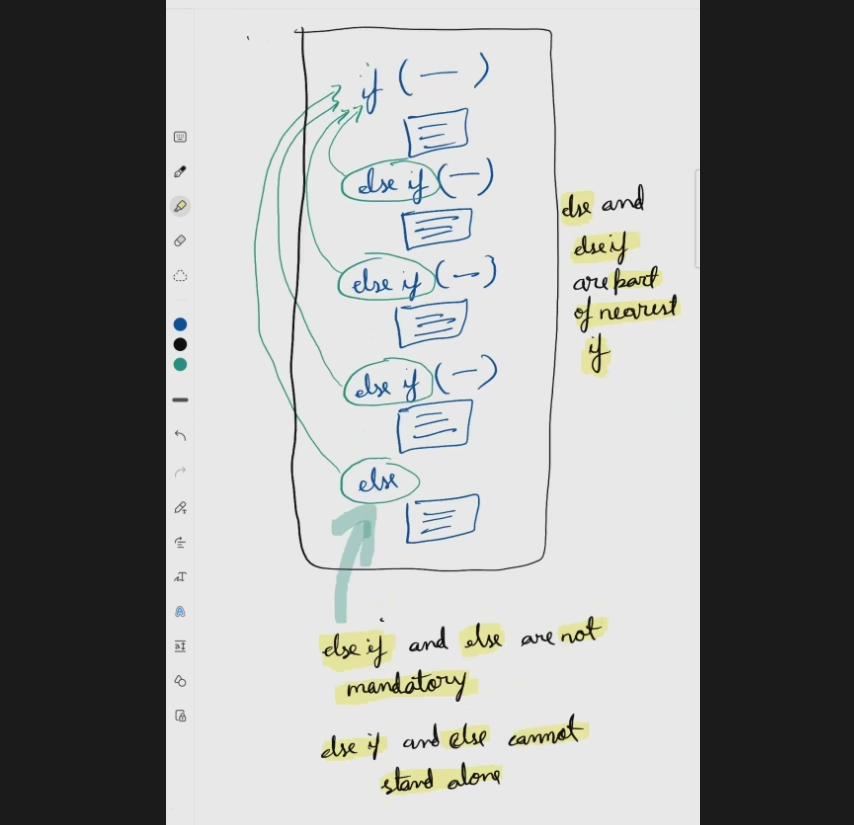 if ( — )
else if ( — )
else if ( — )
else if ( — )
else
else and
else if
are part
of nearest
if
else if and else are not
mandatory
else if and else cannot
stand alone